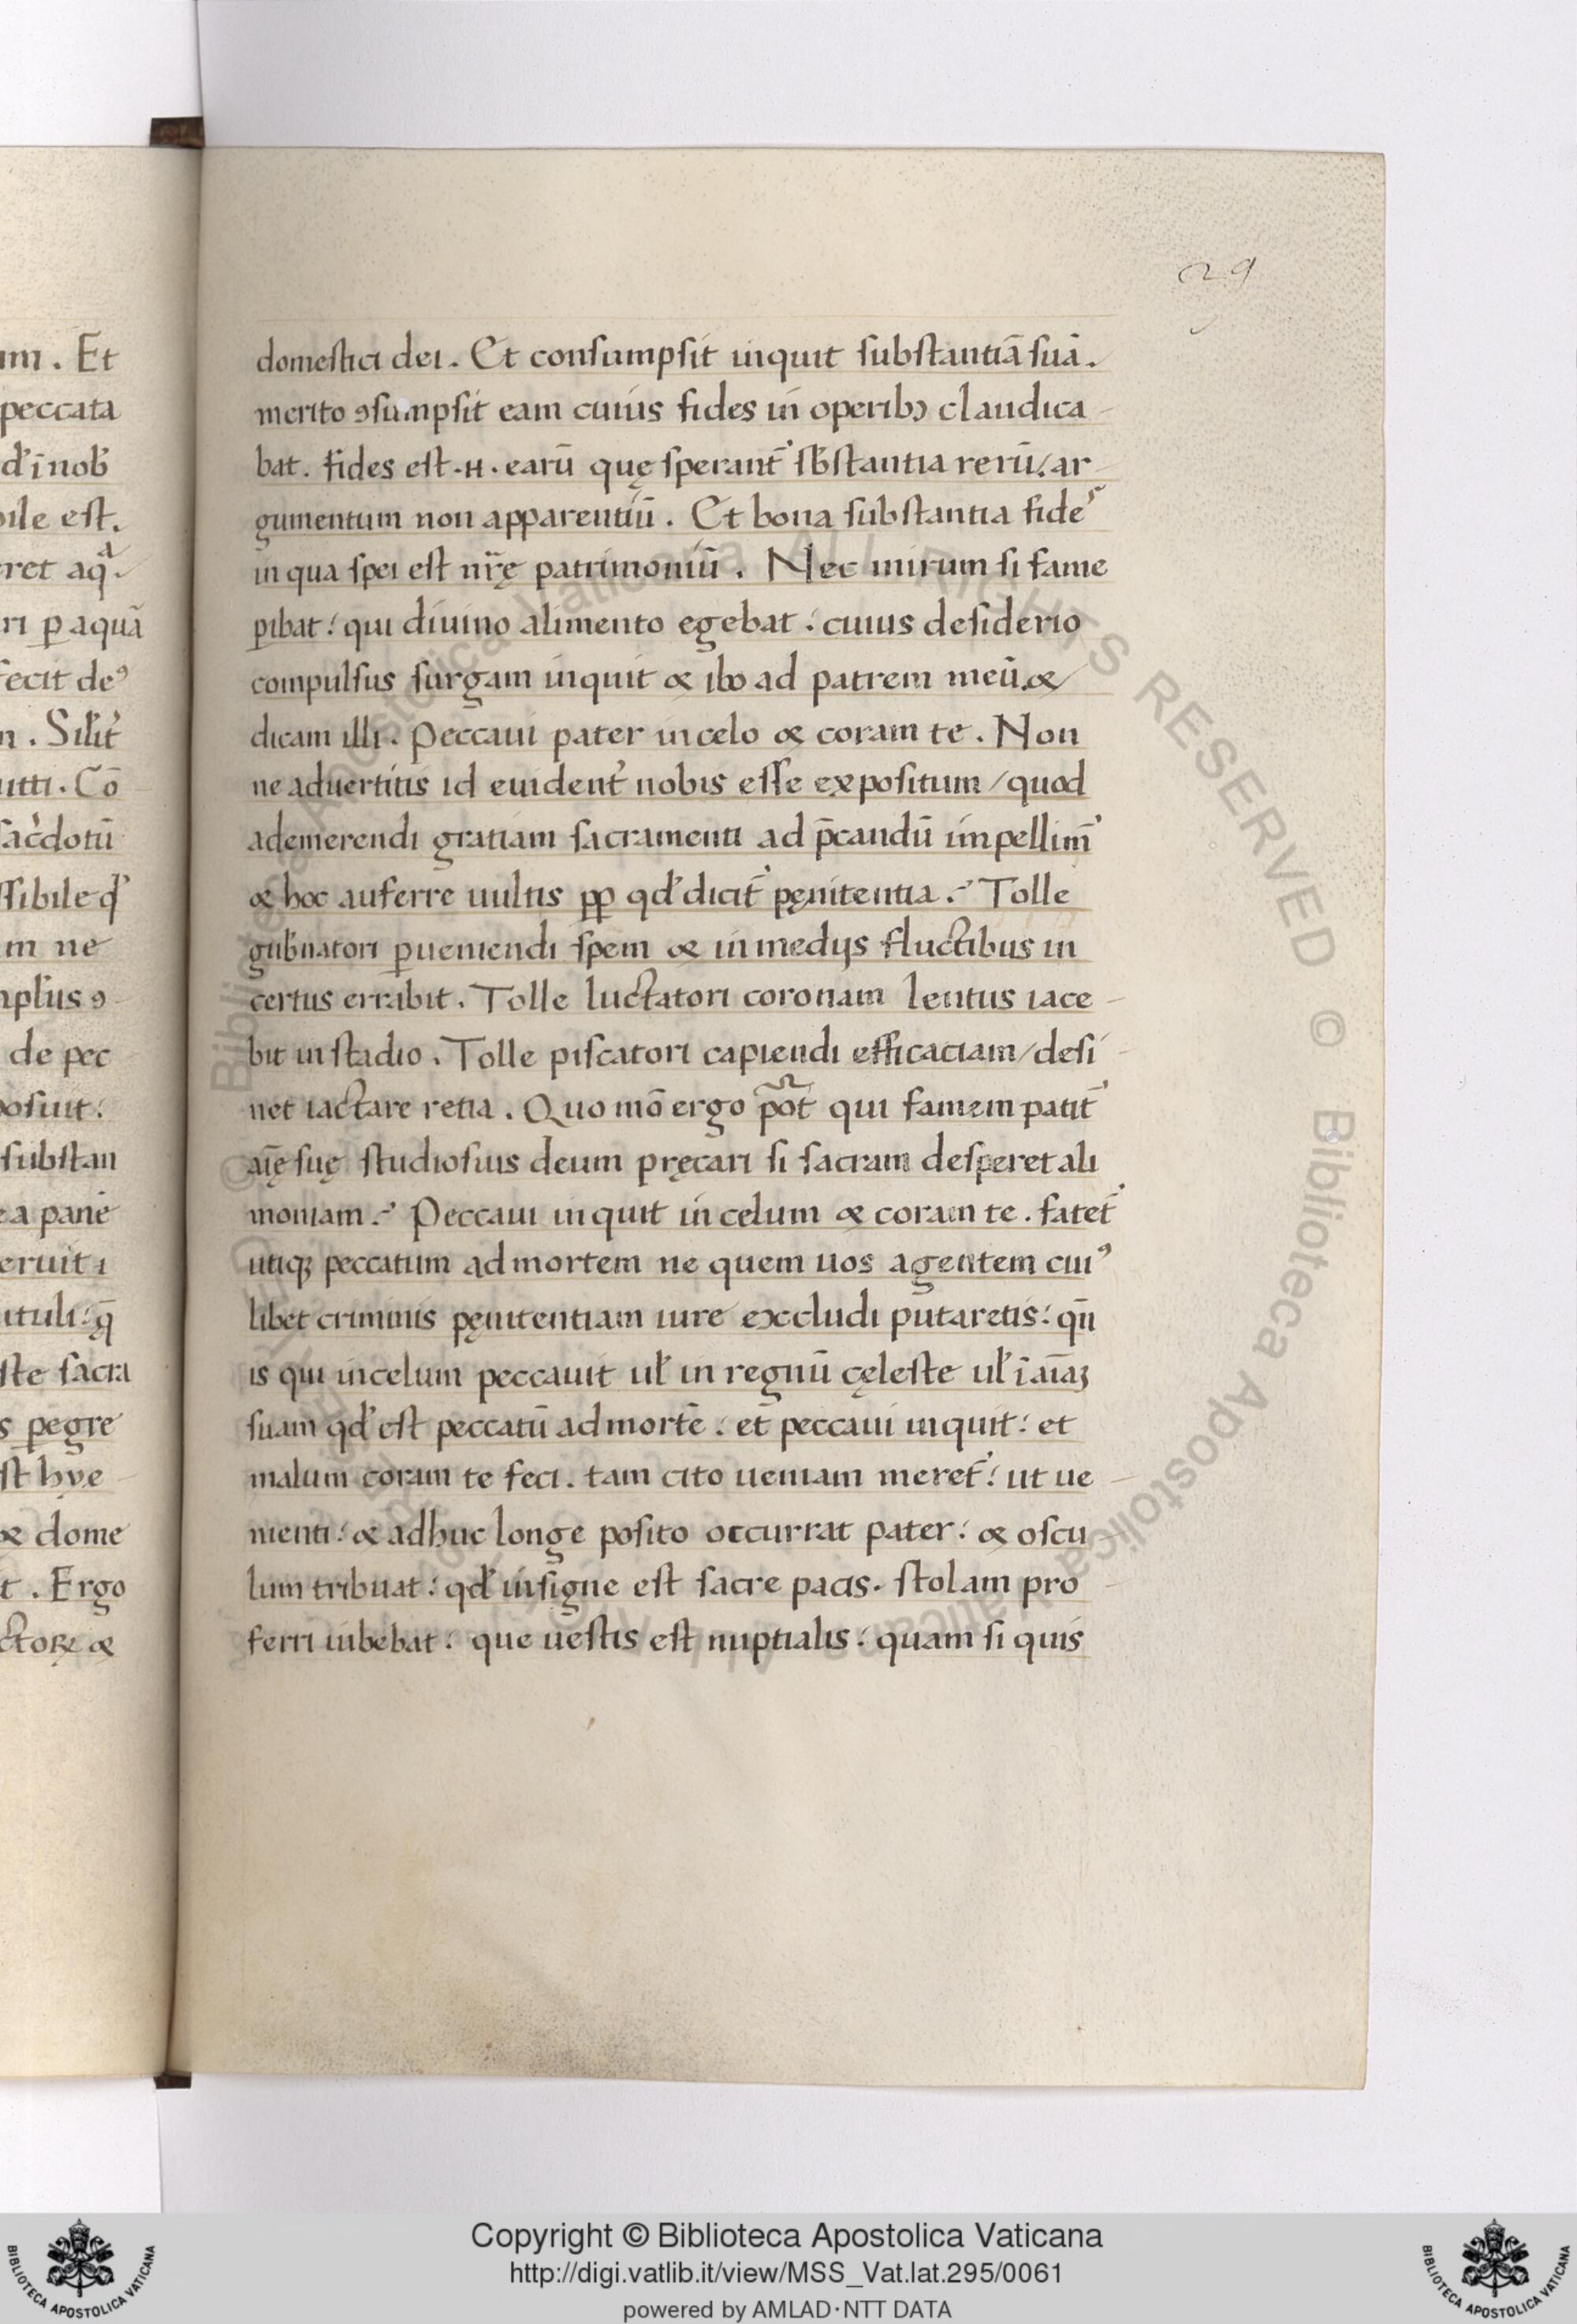 29
um . Et
peccata
d' ī nob
bile est.
ret aq̄.
ri ꝑ aquā
fecit deꝰ
n . Silit̉
utti . Cō
sac̉dotū
ssibile q̓
m ne
mplus ꝯ
de pec
posuit:
substan
ea panē
eruit i
ituli: q̄
ste sacra
s ꝑegre
st hve
& dome
t . Ergo
ctoꝝ &
domestici dei . Et consumpsit inquit substantiā suā .
merito ꝯsumpsit eam cuius fides in operibꝫ claudica-
bat . fides est . n . earū quę sperant̉ sb̄stantia rerū: ar-
gumentum non apparentiū . Et bona substantia fideꝰ
in qua spei est nr̄ę patrimoniū . Nec mirum si fame
ꝑibat: qui diuino alimento egebat: cuius desiderio
compulsus surgam inquit & ibo ad patrem meū. &
dicam illi . Peccaui pater in celo & coram te . Non
ne aduertitis id euident̉ nobis esse expositum / quod
ademerendi gratiam sacramenti ad p̄candū impellimꝰ
& hoc auferre uultis ꝓꝑ qd̓ dicit̉ pęnitentia . Tolle
gub̓natori ꝑueniendi spem & in medijs fluctibus in
certus errabit . Tolle luctatori coronam lentus iace-
bit in stadio . Tolle piscatori capiendi efficaciam / desi-
net iactare retia . Quo mō ergo pōt qui famem patit̉
aīę suę studiosius deum pręcari si sacram desperet ali
moniam . Peccaui inquit in celum & coram te . fatet̉
utiqꝫ peccatum ad mortem ne quem uos agentem cuiꝰ
libet criminis pęnitentiam iure excludi putaretis: qn̄
is qui in celum peccauit ul̓ in regnū cęleste ul̓ ī aīaꝫ
suam qd̓ est peccatū ad mortē: et̄ peccaui inquit: et
malum coram te feci . tam cito ueniam meret̉: ut ue-
nienti: & adhuc longe posito occurrat pater: & oscu-
lum tribuat: qd̓ insigne est sacre pacis . stolam pro-
ferri iubebat: que uestis est nuptialis: quam si quis
© Biblioteca Apostolica Vaticana ALL RIGHTS RESERVED © Biblioteca Apostolica Vaticana
Copyright © Biblioteca Apostolica Vaticana
http://digi.vatlib.it/view/MSS_Vat.lat.295/0061
powered by AMLAD·NTT DATA
BIBLIOTECA APOSTOLICA VATICANA
BIBLIOTECA APOSTOLICA VATICANA